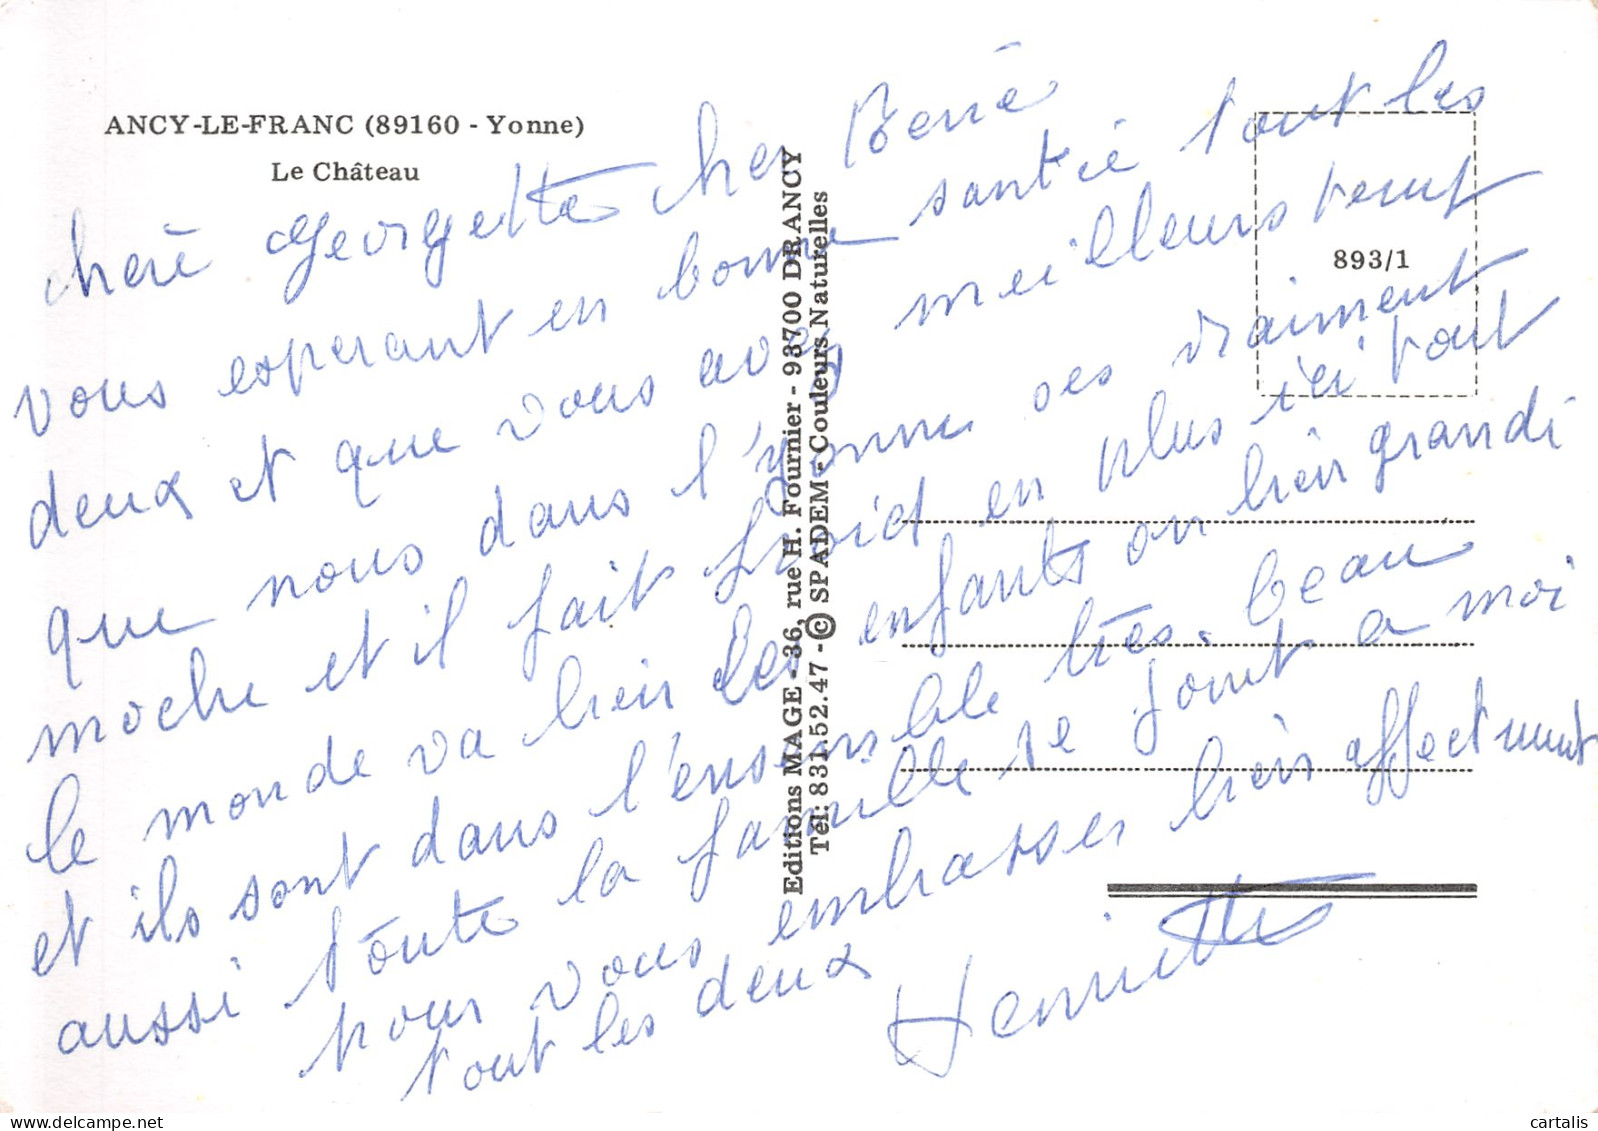 ANCY-LE-FRANC (89160 - Yonne)
Le Château
cheré Georgette cher
vous esperant en bonne santé tout les
deux et que vous avez meilleurs temp
que nous dans l'yonne ses vraiment
moche et il fait froid en plus ici tout
le monde va bien les enfants on bien grandi
et ils sont dans l'ensemble très beau
aussi toute la famille se joint a moi
pour vous embrasser bien affectment
tout les deux Henriette
Editions MAGE - 36, rue H. Fournier - 93700 DRANCY
Tél: 831.52.47 - © SPADEM - Couleurs Naturelles
893/1
cartalis